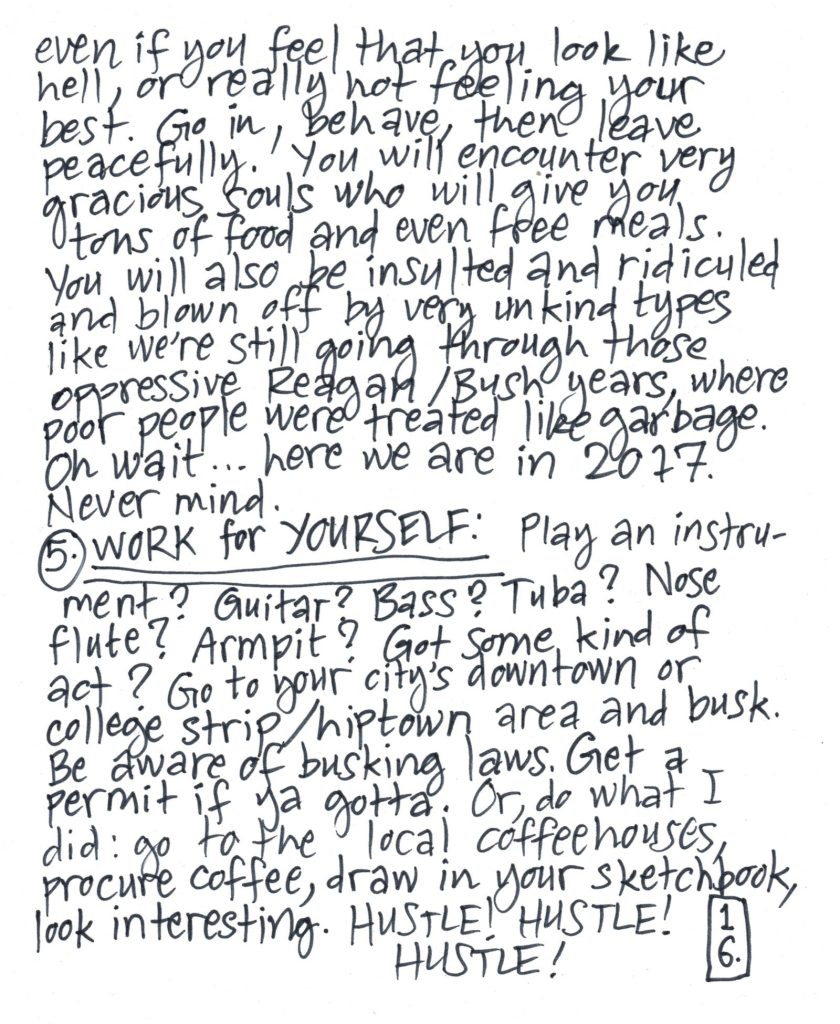 even if you feel that you look like
hell, or really not feeling your
best. Go in, behave, then leave
peacefully. You will encounter very
gracious souls who will give you
tons of food and even free meals.
You will also be insulted and ridiculed
and blown off by very unkind types
like we're still going through those
oppressive Reagan/Bush years, where
poor people were treated like garbage.
Oh wait... here we are in 2017.
Never mind.
5. WORK for YOURSELF: Play an instru-
ment? Guitar? Bass? Tuba? Nose
flute? Armpit? Got some kind of
act? Go to your city's downtown or
college strip/hiptown area and busk.
Be aware of busking laws. Get a
permit if ya gotta. Or, do what I
did: go to the local coffeehouses,
procure coffee, draw in your sketchbook,
look interesting. HUSTLE! HUSTLE!
HUSTLE!
16.